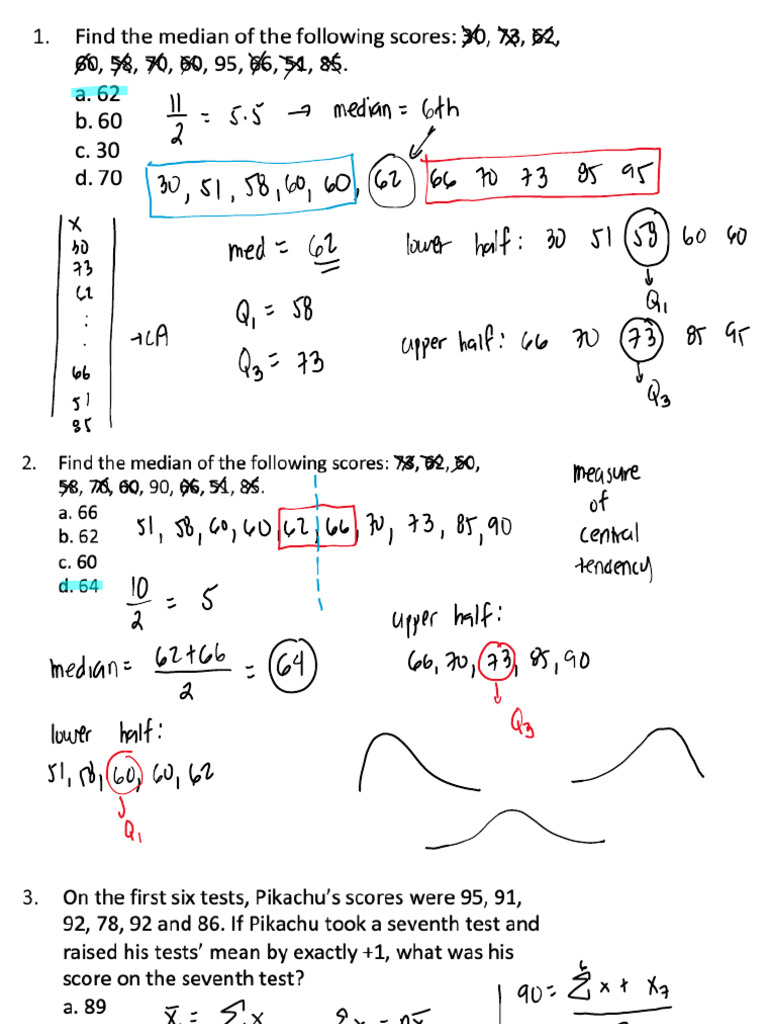 1. Find the median of the following scores: 30, 73, 62,
60, 58, 70, 60, 95, 66, 51, 85.
a. 62
b. 60
c. 30
d. 70
11/2 = 5.5 → median = 6th
30, 51, 58, 60, 60, 62 66 70 73 85 95
x
30
73
62
:
.
66
51
85
med = 62
Q1 = 58
Q3 = 73
lower half: 30 51 58 60 60
Q1
upper half: 66 70 73 85 95
Q3
2. Find the median of the following scores: 73, 62, 60,
58, 70, 60, 90, 66, 51, 85.
a. 66
b. 62
c. 60
d. 64
51, 58, 60, 60, 62, 66, 70, 73, 85, 90
measure
of
central
tendency
10/2 = 5
median = 62+66/2 = 64
upper half:
66, 70, 73, 85, 90
Q3
lower half:
51, 58, 60, 60, 62
Q1
3. On the first six tests, Pikachu's scores were 95, 91,
92, 78, 92 and 86. If Pikachu took a seventh test and
raised his tests' mean by exactly +1, what was his
score on the seventh test?
a. 89
90 = 6 Σ x + x7
x̄ = Σx